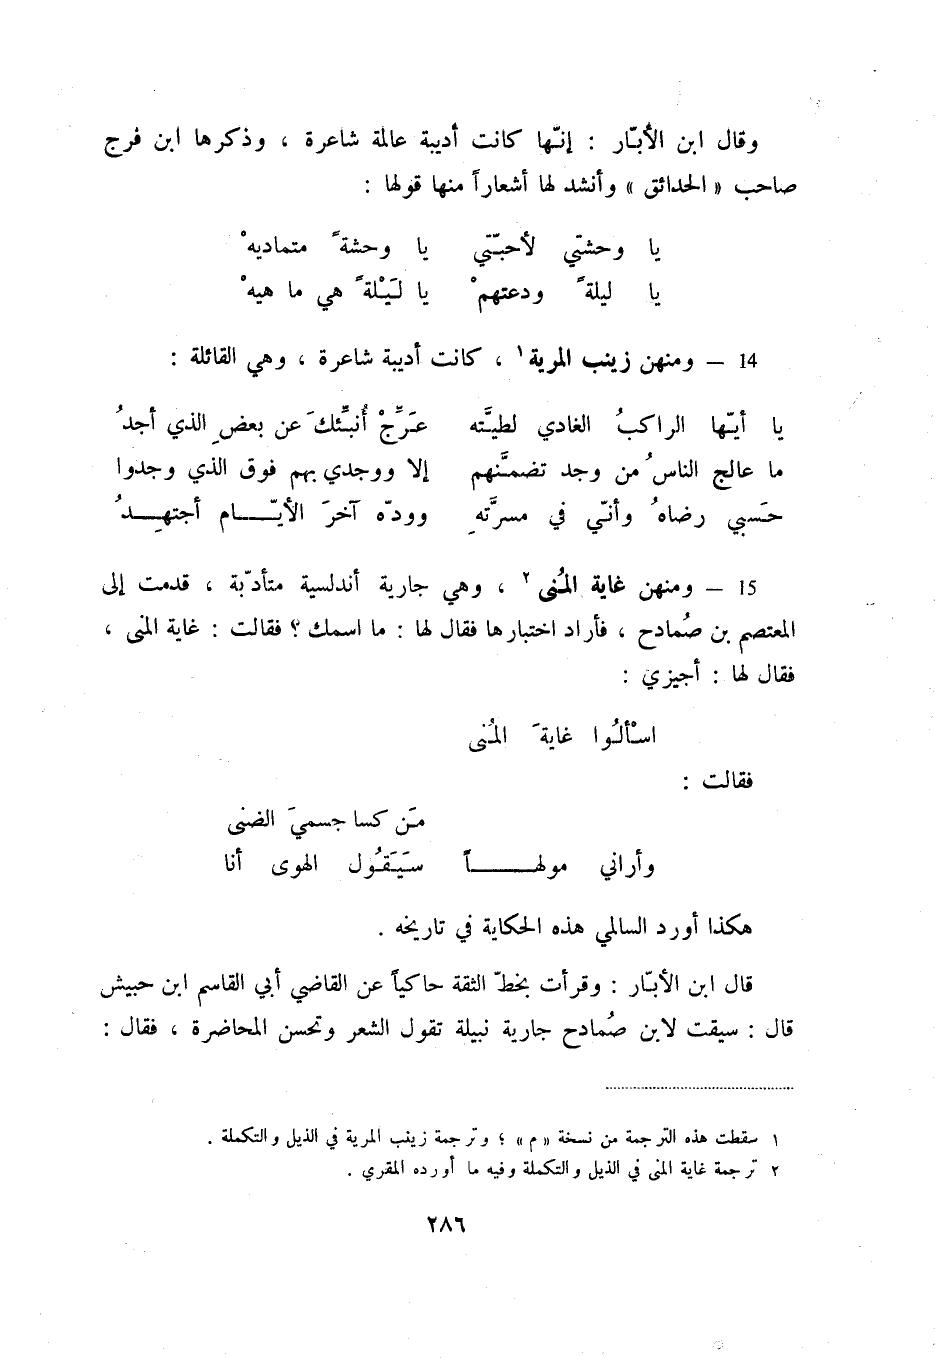 وقال ابن الأبّار : إنّها كانت أديبة عالمة شاعرة ، وذكرها ابن فرج
صاحب « الحدائق » وأنشد لها أشعاراً منها قولها :
يا وحشتي لأحبّتي يا وحشةً متماديهْ
يا ليلةً ودعتهمْ يا لَيْلةً هي ما هيهْ
14 – ومنهن زينب المرية ١ ، كانت أديبة شاعرة ، وهي القائلة :
يا أيّها الراكبُ الغادي لطيَّته عَرِّجْ أُنبِّئكَ عن بعضِ الذي أجدُ
ما عالج الناسُ من وجد تضمنَّهم إلا ووجدي بهم فوق الذي وجدوا
حَسبي رضاهُ وأنّي في مسرَّتهِ وودّه آخرَ الأيّـــام أجتهـــدُ
15 – ومنهن غاية المُنى ٢ ، وهي جارية أندلسية متأدّبة ، قدمت إلى
المعتصم بن صُمادح ، فأراد اختبارها فقال لها : ما اسمك ؟ فقالت : غاية المنى ،
فقال لها : أجيزي :
اسْألُوا غايةَ المُنى
فقالت :
مَن كسا جسميَ الضنى
وأراني مولهــــاً سَيَقُول الهوى أنا
هكذا أورد السالمي هذه الحكاية في تاريخه .
قال ابن الأبّار : وقرأت بخطّ الثقة حاكياً عن القاضي أبي القاسم ابن حبيش
قال : سيقت لابن صُمادح جارية نبيلة تقول الشعر وتحسن المحاضرة ، فقال :
١ سقطت هذه الترجمة من نسخة « م » ؛ وترجمة زينب المرية في الذيل والتكملة .
٢ ترجمة غاية المنى في الذيل والتكملة وفيه ما أورده المقري .
٢٨٦